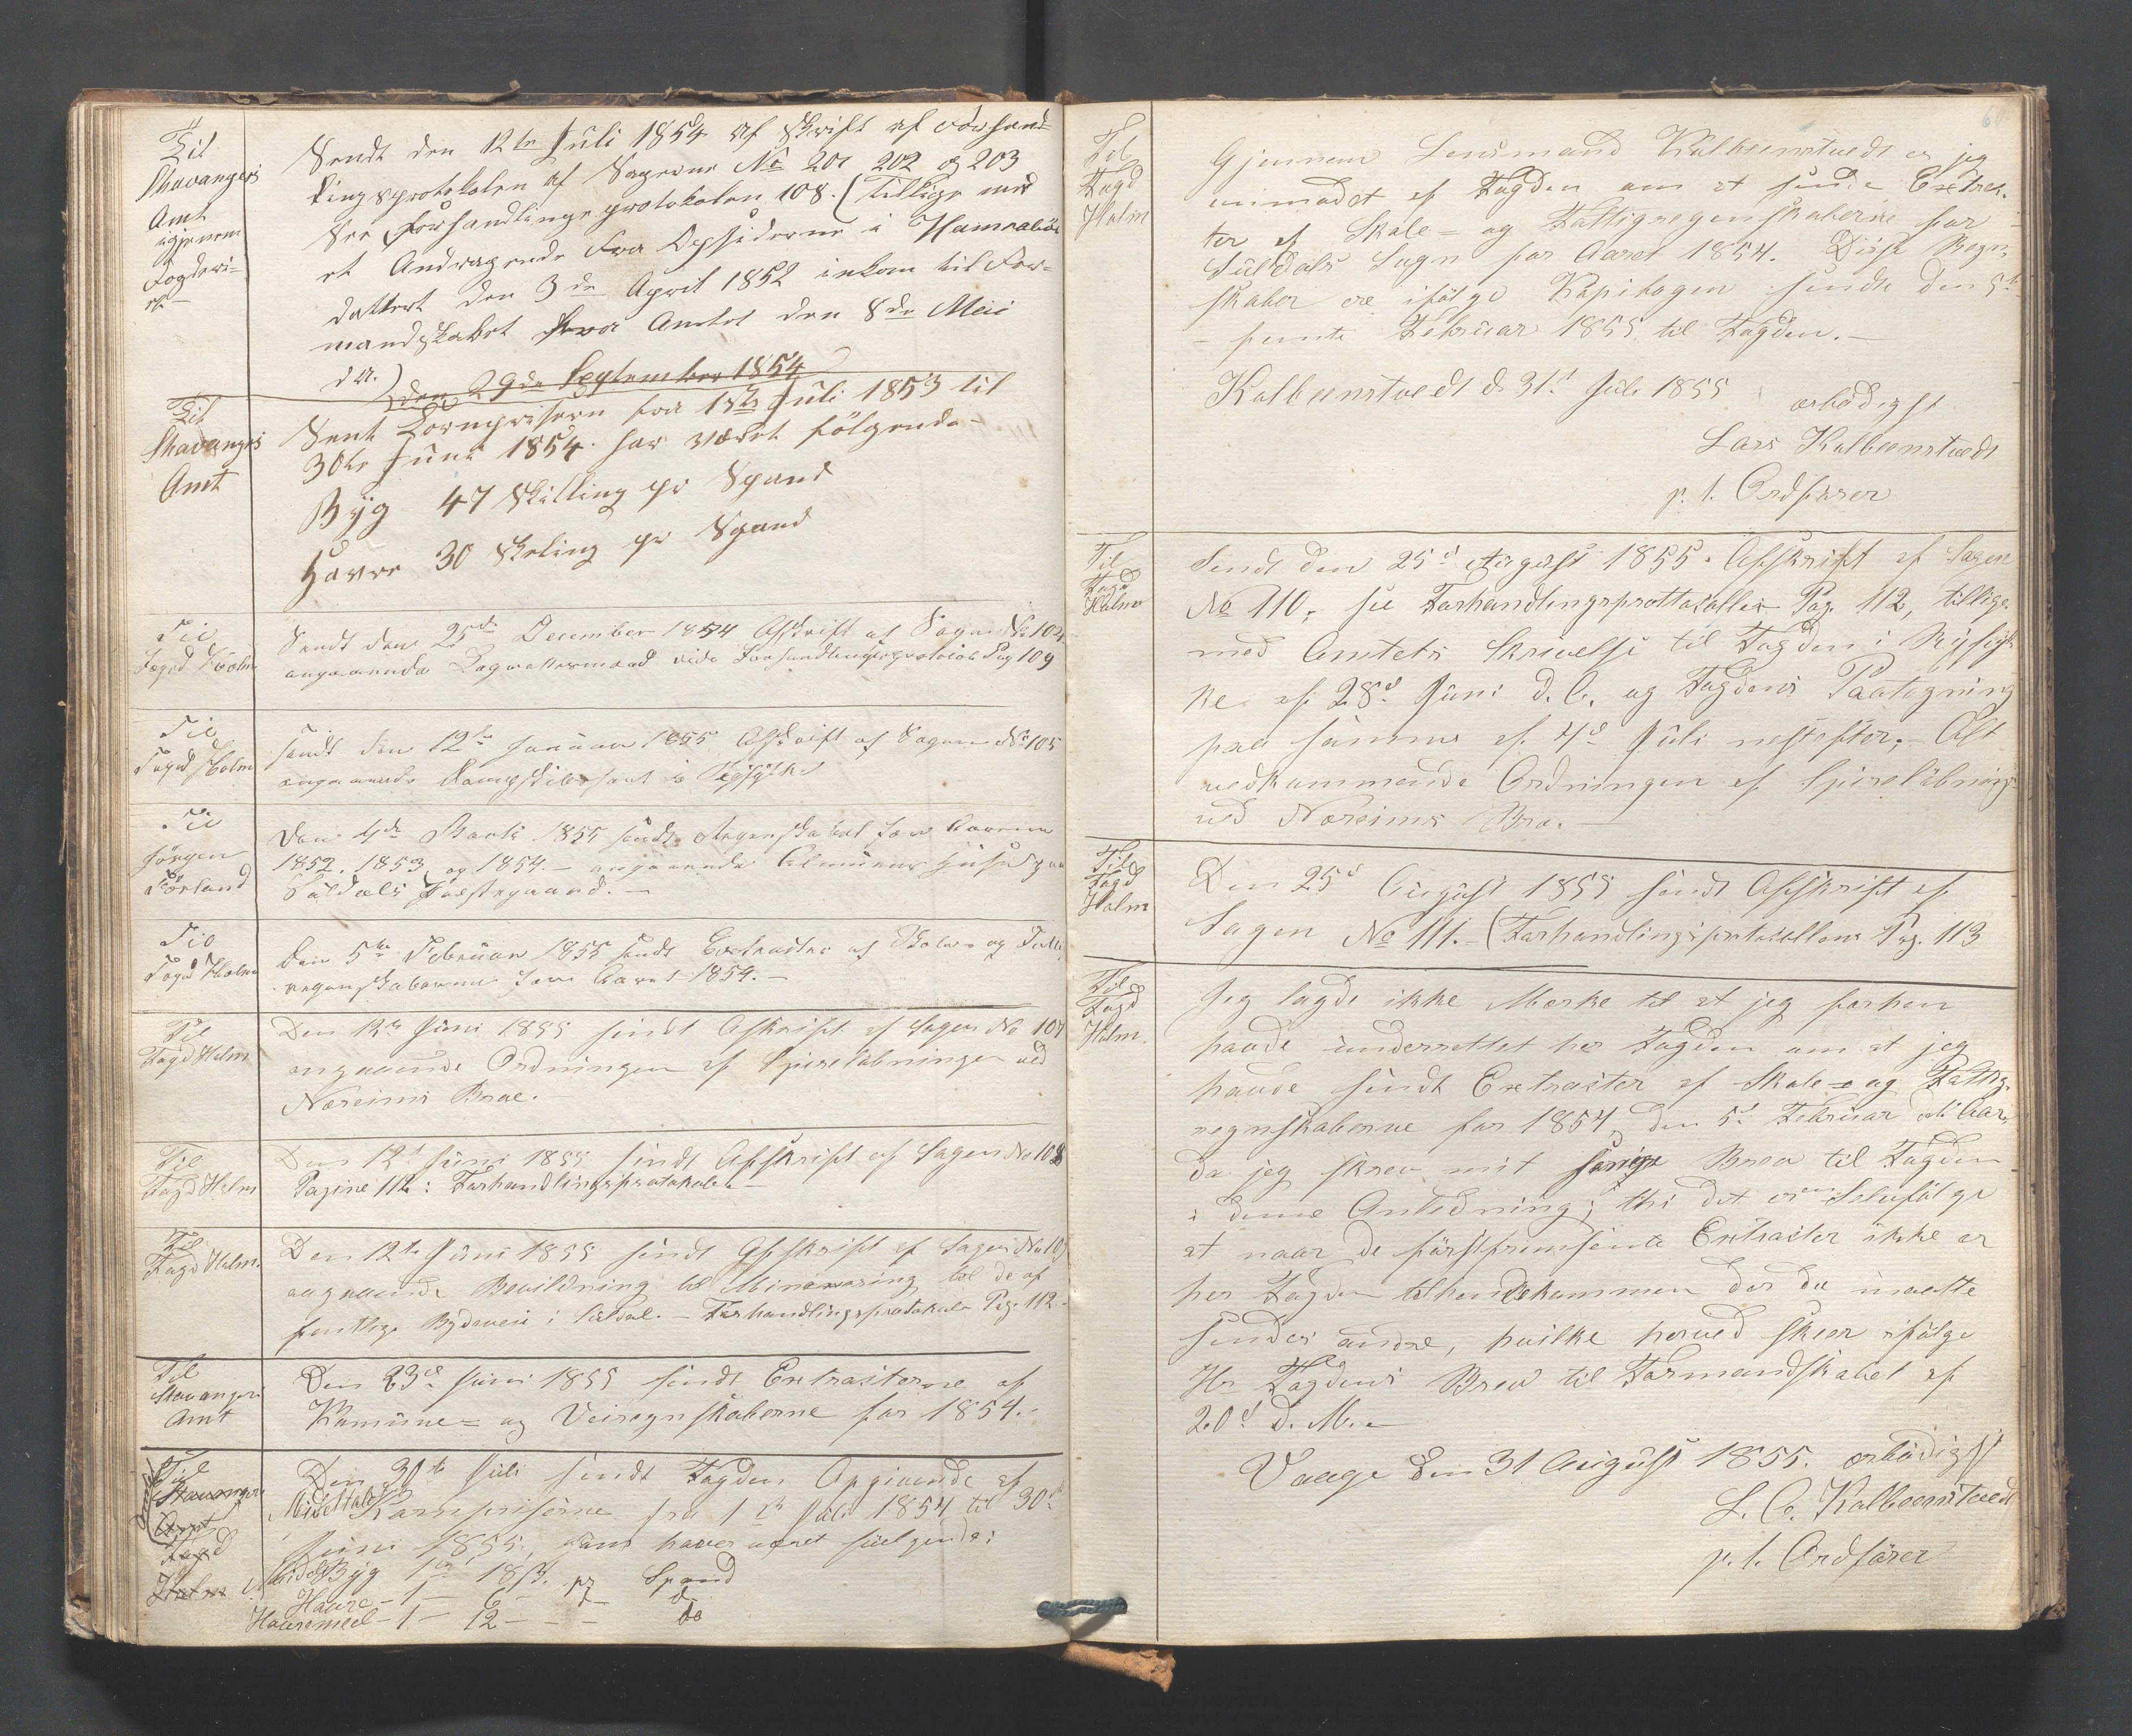 Til
Stavangers
Amt
igjenem
Fogderi-
et
Sendt den 12te Juli 1854 Afskrift af Forhand-
lingsprotokolen af Sagerne No 201 202 og 203
See Forhandlingsprotokolen 108. (Tillige med
et Andragende Fra Opsiderne i
dattert den 3de April 1852 inkom til For-
mandskabet fra Amtet den 8de Mai
d. A.)
den 29de September 1854
Til
Stavangers
Amt
Sent Kornprisern fra 1ste Juli 1853 til
30te Juni 1854. har været følgende
Byg 47 Skilling pr Spand
Havre 30 Skeling pr Spand
Til
Foged Holm
Sendt den 25de December 1854 Afskrift af Sagen No 104
angaaende vide Forhandlingsprotocol Pag 109
Til
Foged Holm
Sendt den 12te Januar 1855 Afskrift af Sagen No 105
angaaende Dampskibsfart i Ryfylke
Til
Jörgen
Förland
Den 4de Marts 1855 sendt Regenskabet for Aarene
1852, 1853, og 1854. — angaaende Almues Huset paa
Suldals Prestegaard. —
Til
Foged Holm
Den 5te Februar 1855 sendt Extracter af Skole og Fattig
regenskaberne for Aaret 1854. —
Til
Fogd Holm
Den 12te Juni 1855 sendt Afskrift af Sagen No 107
angaaende Ordningen af Spireløbningen ved
Noreims Broe. —
Til
Fogd Holm
Den 12te Juni 1855 sendt Afskrift af Sagen No 108
Pagine 111: Forhandlingsprotokolen —
Til
Fogd Holm.
Den 12te Juni 1855 sendt Afskrift af Sagen No 109
angaaende Bevildning til Minering til de of-
fentlige Bydeveie i Suldal. — Forhandlingsprotokolen Pag. 112 —
Til
Stavangers
Amt
Den 23de Juni 1855 sendt Extracterne af
Komune- og Veiregnskaberne for 1854. —
Til
Stavangers
Amt
Fogd
Holm
Den 30te Juli sendt Fogden Opgivende af
Middeltals Kornpriserne fra 1ste Juli 1854 til 30te
Juni 1855, som haver været følgende:
Byg 1 18 ß. pr Spand
Havre — 1 — 6 — — do
Havremeel — 1 — 12 — — do
Til
Fogd
Holm
Gjennem Lensmand Kolbeenstvedt er jeg
anmodet af Fogden om at sende Extrac-
ter af Skole- og Fattigregenskaberne for
Suldals Sogn for Aaret 1854. Disse Regn-
skaber ere ifølge Kopibogen sendte den 5te
— femte Februar 1855 til Fogden. —
Kolbeenstvedt d. 31te Juli 1855
ærbødigst
Lars Kolbeenstvedt
p. t. Ordfører
Til
Fogd
Holm
Sendt den 25de August 1855. Afskrift af Sagen
No 110, see Forhandlingsprottocollen Pag. 112, tillige
med Amtets Skrivelse til Fogden i Ryfyl-
ke af 28de Juni d. A. og Fogdens Paategning
paa samme af 4de Juli nestefter; — Alt
vedkommende Ordningen af Spireløbning
ved Noreims Bro. —
Til
Fogd
Holm
Den 25de August 1855 sendt Afskrift af
Sagen No 111. — (Forhandlingsprotocollens Pag. 113
Til
Fogd
Holm.
Jeg lagde ikke Mærke til at jeg forhen
havde underrettet hr Fogden om at jeg
havde sendt Extracter af Skole- og Fattig-
regnskaberne for 1854, den 5te Februar d. Aar,
da jeg skrev mit forrige Brev til Fogden
i denne Anledning; thi det er en Selvfølge
at naar de førstfremsente Extracter ikke er
hr Fogden tilhændekommen der da maatte
sendes andre, hvilke herved skeer ifølge
Hr Fogdens Brev til Formandskabet af
20de d. M. —
Vaage den 31 August 1855. ærbødigst
L. C. Kolbeenstvedt
p. t. Ordfører